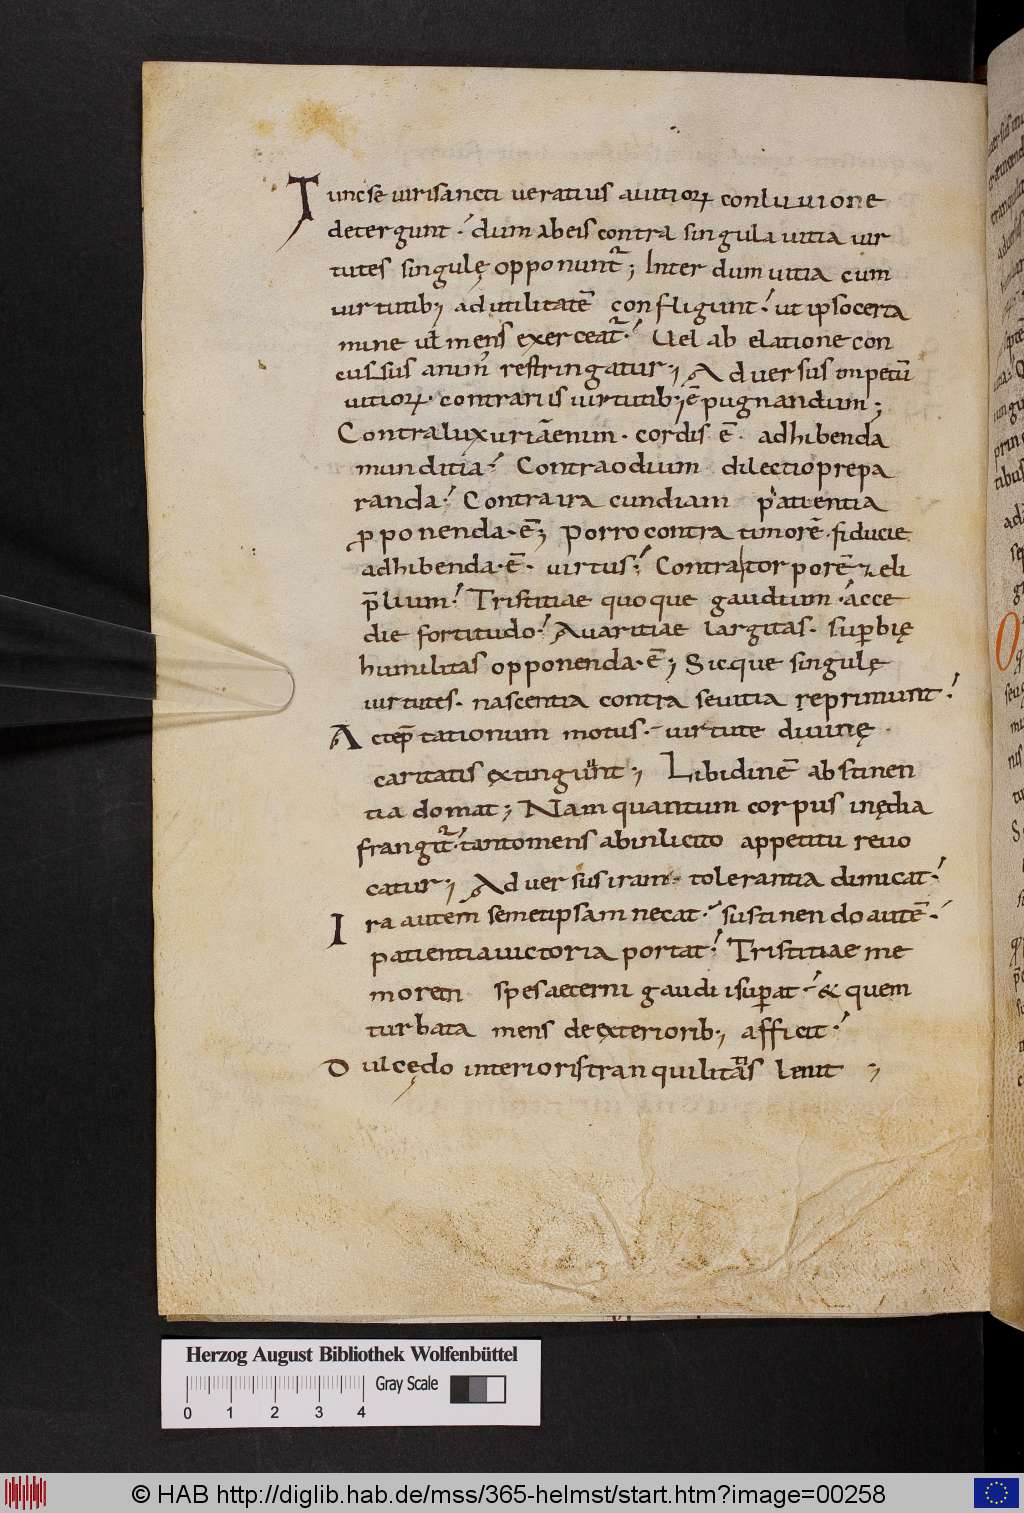 Tunc se uiri sancti ueratius auitiorꝝ conluuione
detergunt · dum abeis contra singula uitia uir
tutes singulę opponunt᷑; Inter dum uitia cum
uirtutib; ad utilitatē confligunt · ut ipso certa
mine uł mens exerceat᷑ · Uel ab elatione con
cussus animū restringatur; Aduersus impetū
uitiorꝝ · contrariis uirtutib; ē pugnandum;
Contra luxuriā enim · cordis ē · adhibenda
munditia · Contra odium dilectio prepa
randa · Contra ira cundiam patientia
ꝓponenda · ē; Porro contra timorē · fiducie
adhibenda · ē · uirtus · Contra torporē · zeli
p̄lium · Tristitiae quoque gaudium · acce
die fortitudo · Auaritiae largitas · suꝑbię
humilitas opponenda · ē; Sicque singulę
uirtutes · nascentia contra se uitia reprimunt ·
Ac tēptationum motus · uirtute diuinę
caritatis extingunt; Libidinē abstinen
tia domat; Nam quantum corpus inędia
frangit᷑ · tanto mens ab inlicito appetitu reuo
catur; Aduersus iram · tolerantia dimicat ·
Ira autem semetipsam necat · sustinendo autē ·
patientia uictoria portat · Tristitiae me
morem spes aeterni gaudii suꝑat · & quem
turbata mens de exteriorib; afficit ·
Dulcędo interioris tranquilitatis lenit;
Herzog August Bibliothek Wolfenbüttel
Gray Scale
0 1 2 3 4
© HAB http://diglib.hab.de/mss/365-helmst/start.htm?image=00258